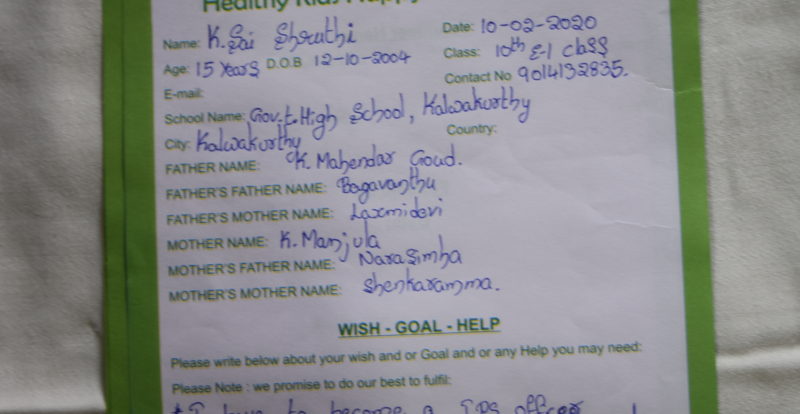 Healthy Kids Happy
Name: K. Sai Shruthi Date: 10-02-2020
Age: 15 Years D.O.B 12-10-2004 Class: 10th E-1 class
Contact No 9014132835.
E-mail:
School Name: Gov.t. High School, Kalwakurthy
City: Kalwakurthy Country:
FATHER NAME: K. Mahendar Goud.
FATHER'S FATHER NAME: Bagavanthu
FATHER'S MOTHER NAME: Laxmidevi
MOTHER NAME: K. Manjula
MOTHER'S FATHER NAME: Narasimha
MOTHER'S MOTHER NAME: Shenkaramma.
WISH - GOAL - HELP
Please write below about your wish and or Goal and or any Help you may need:
Please Note : we promise to do our best to fulfil:
to become a IPS officer